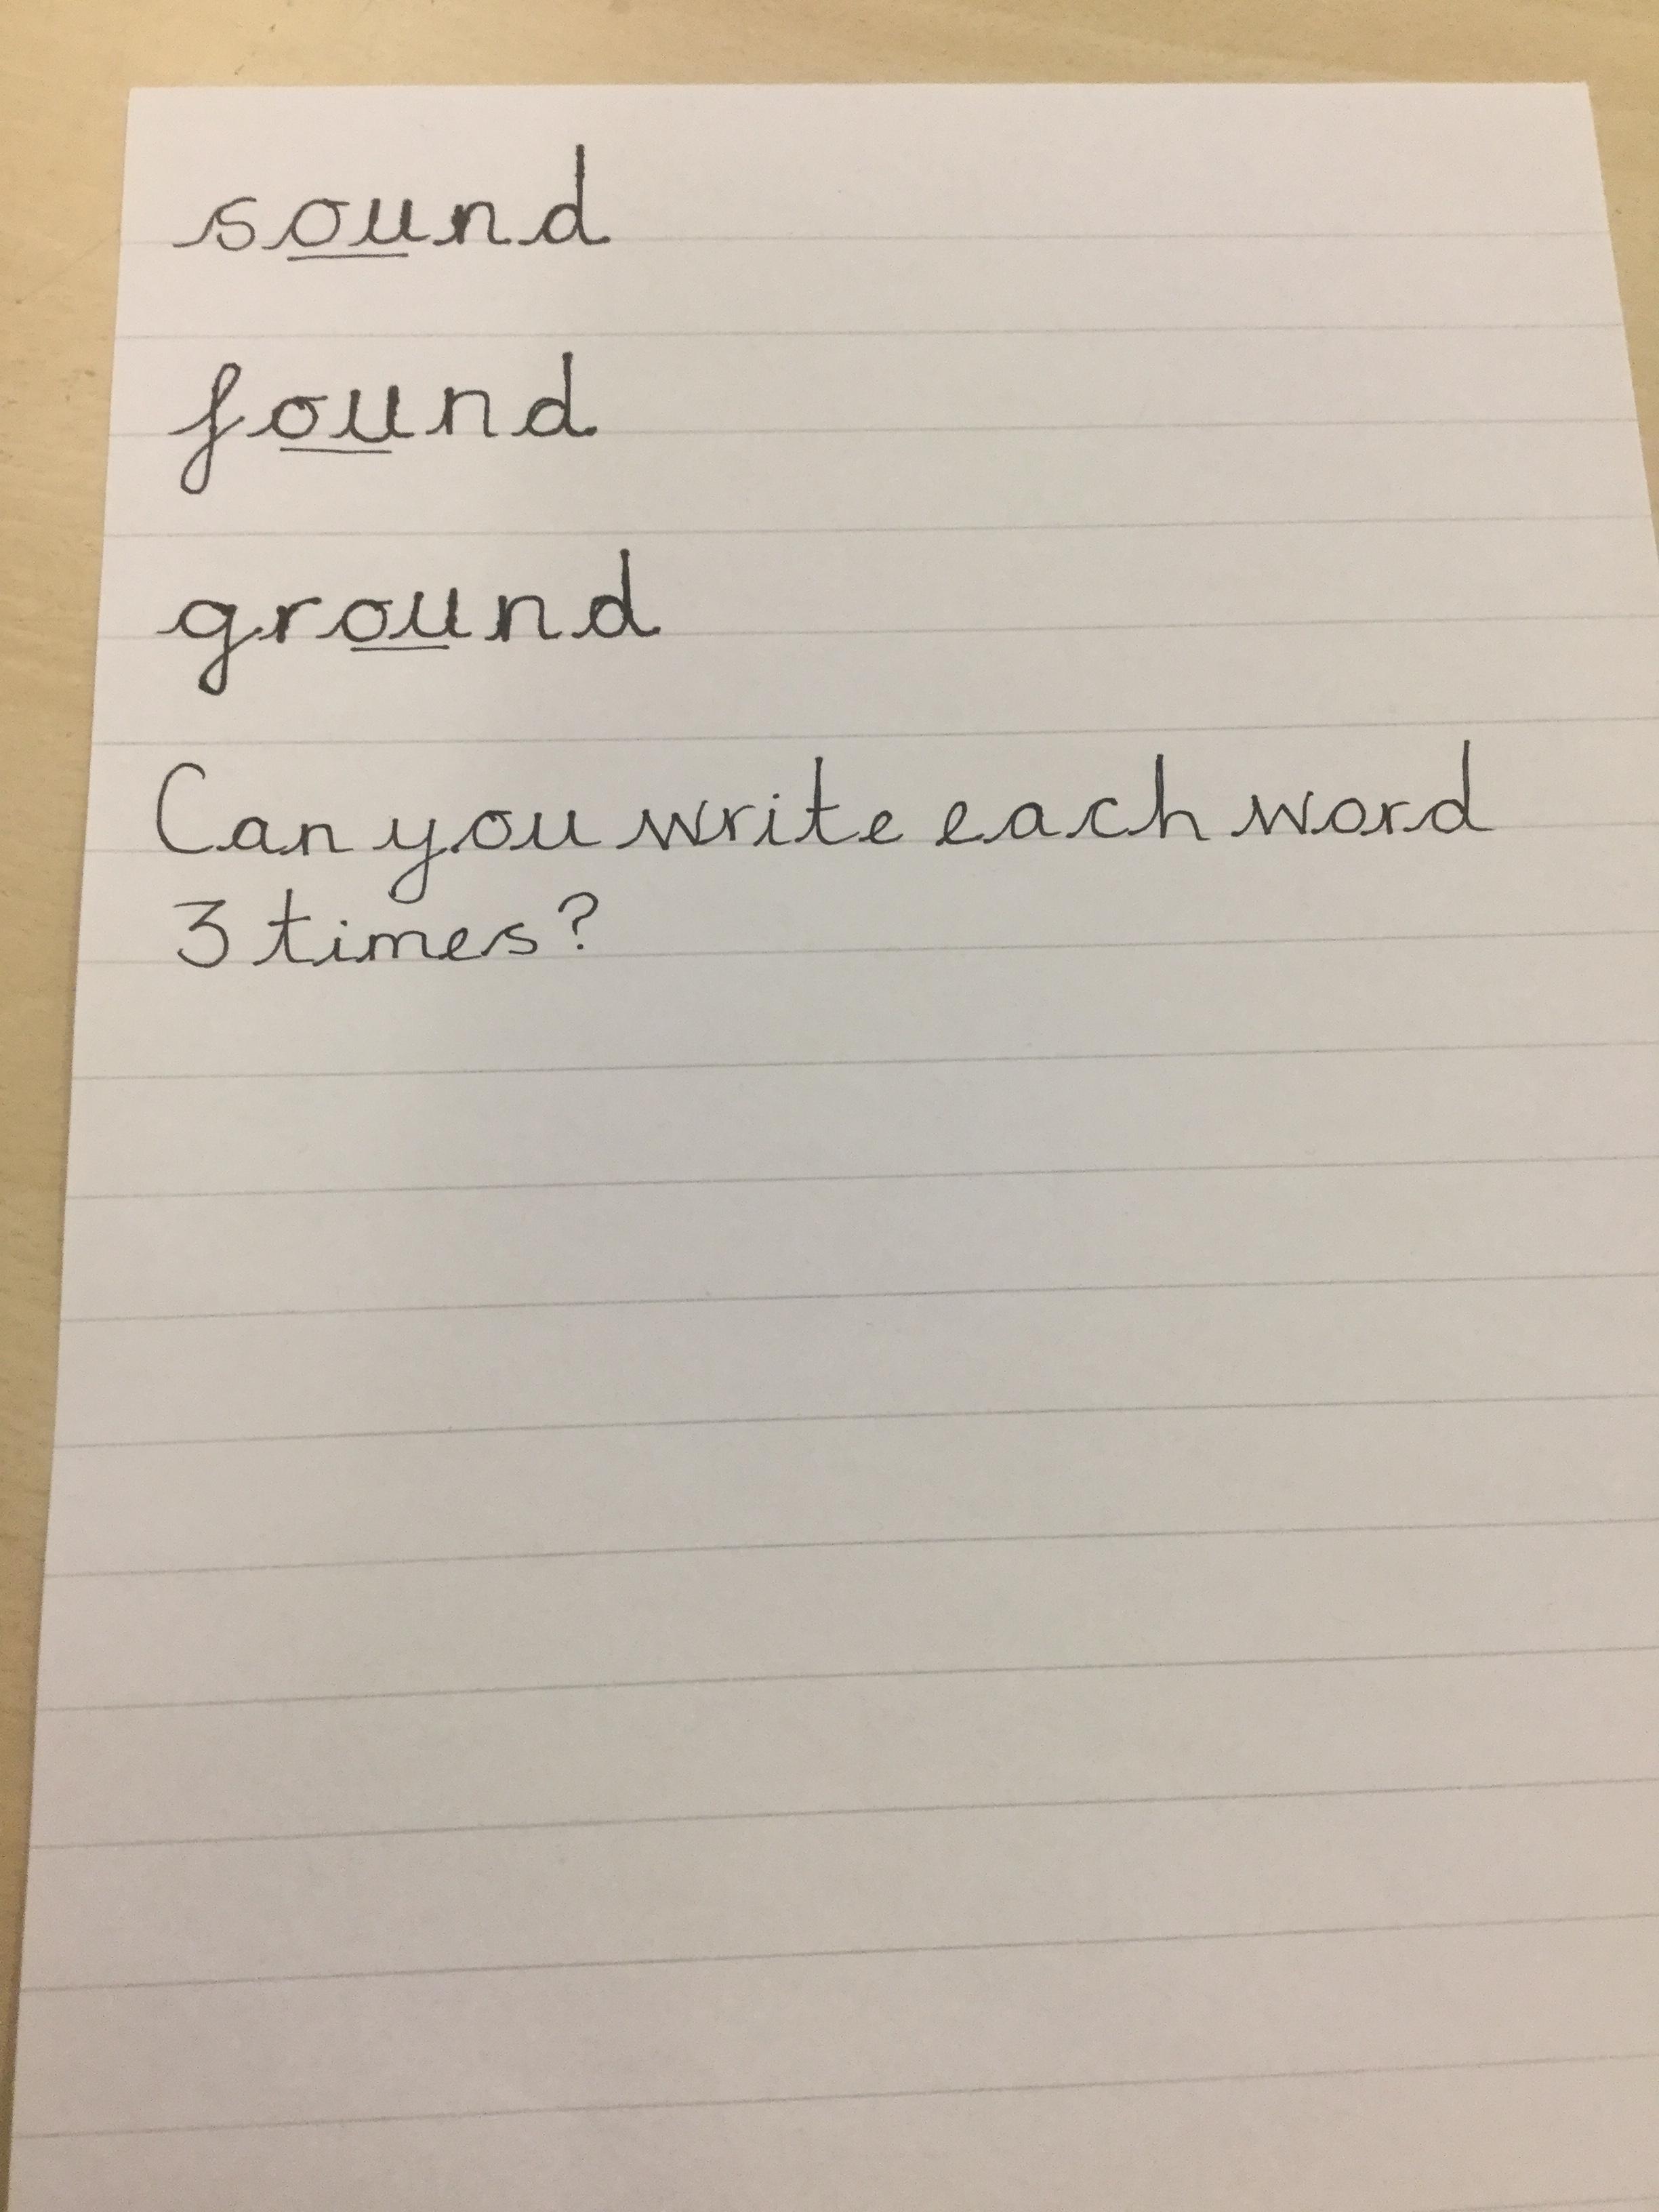 sound
found
ground
Can you write each word
3 times?